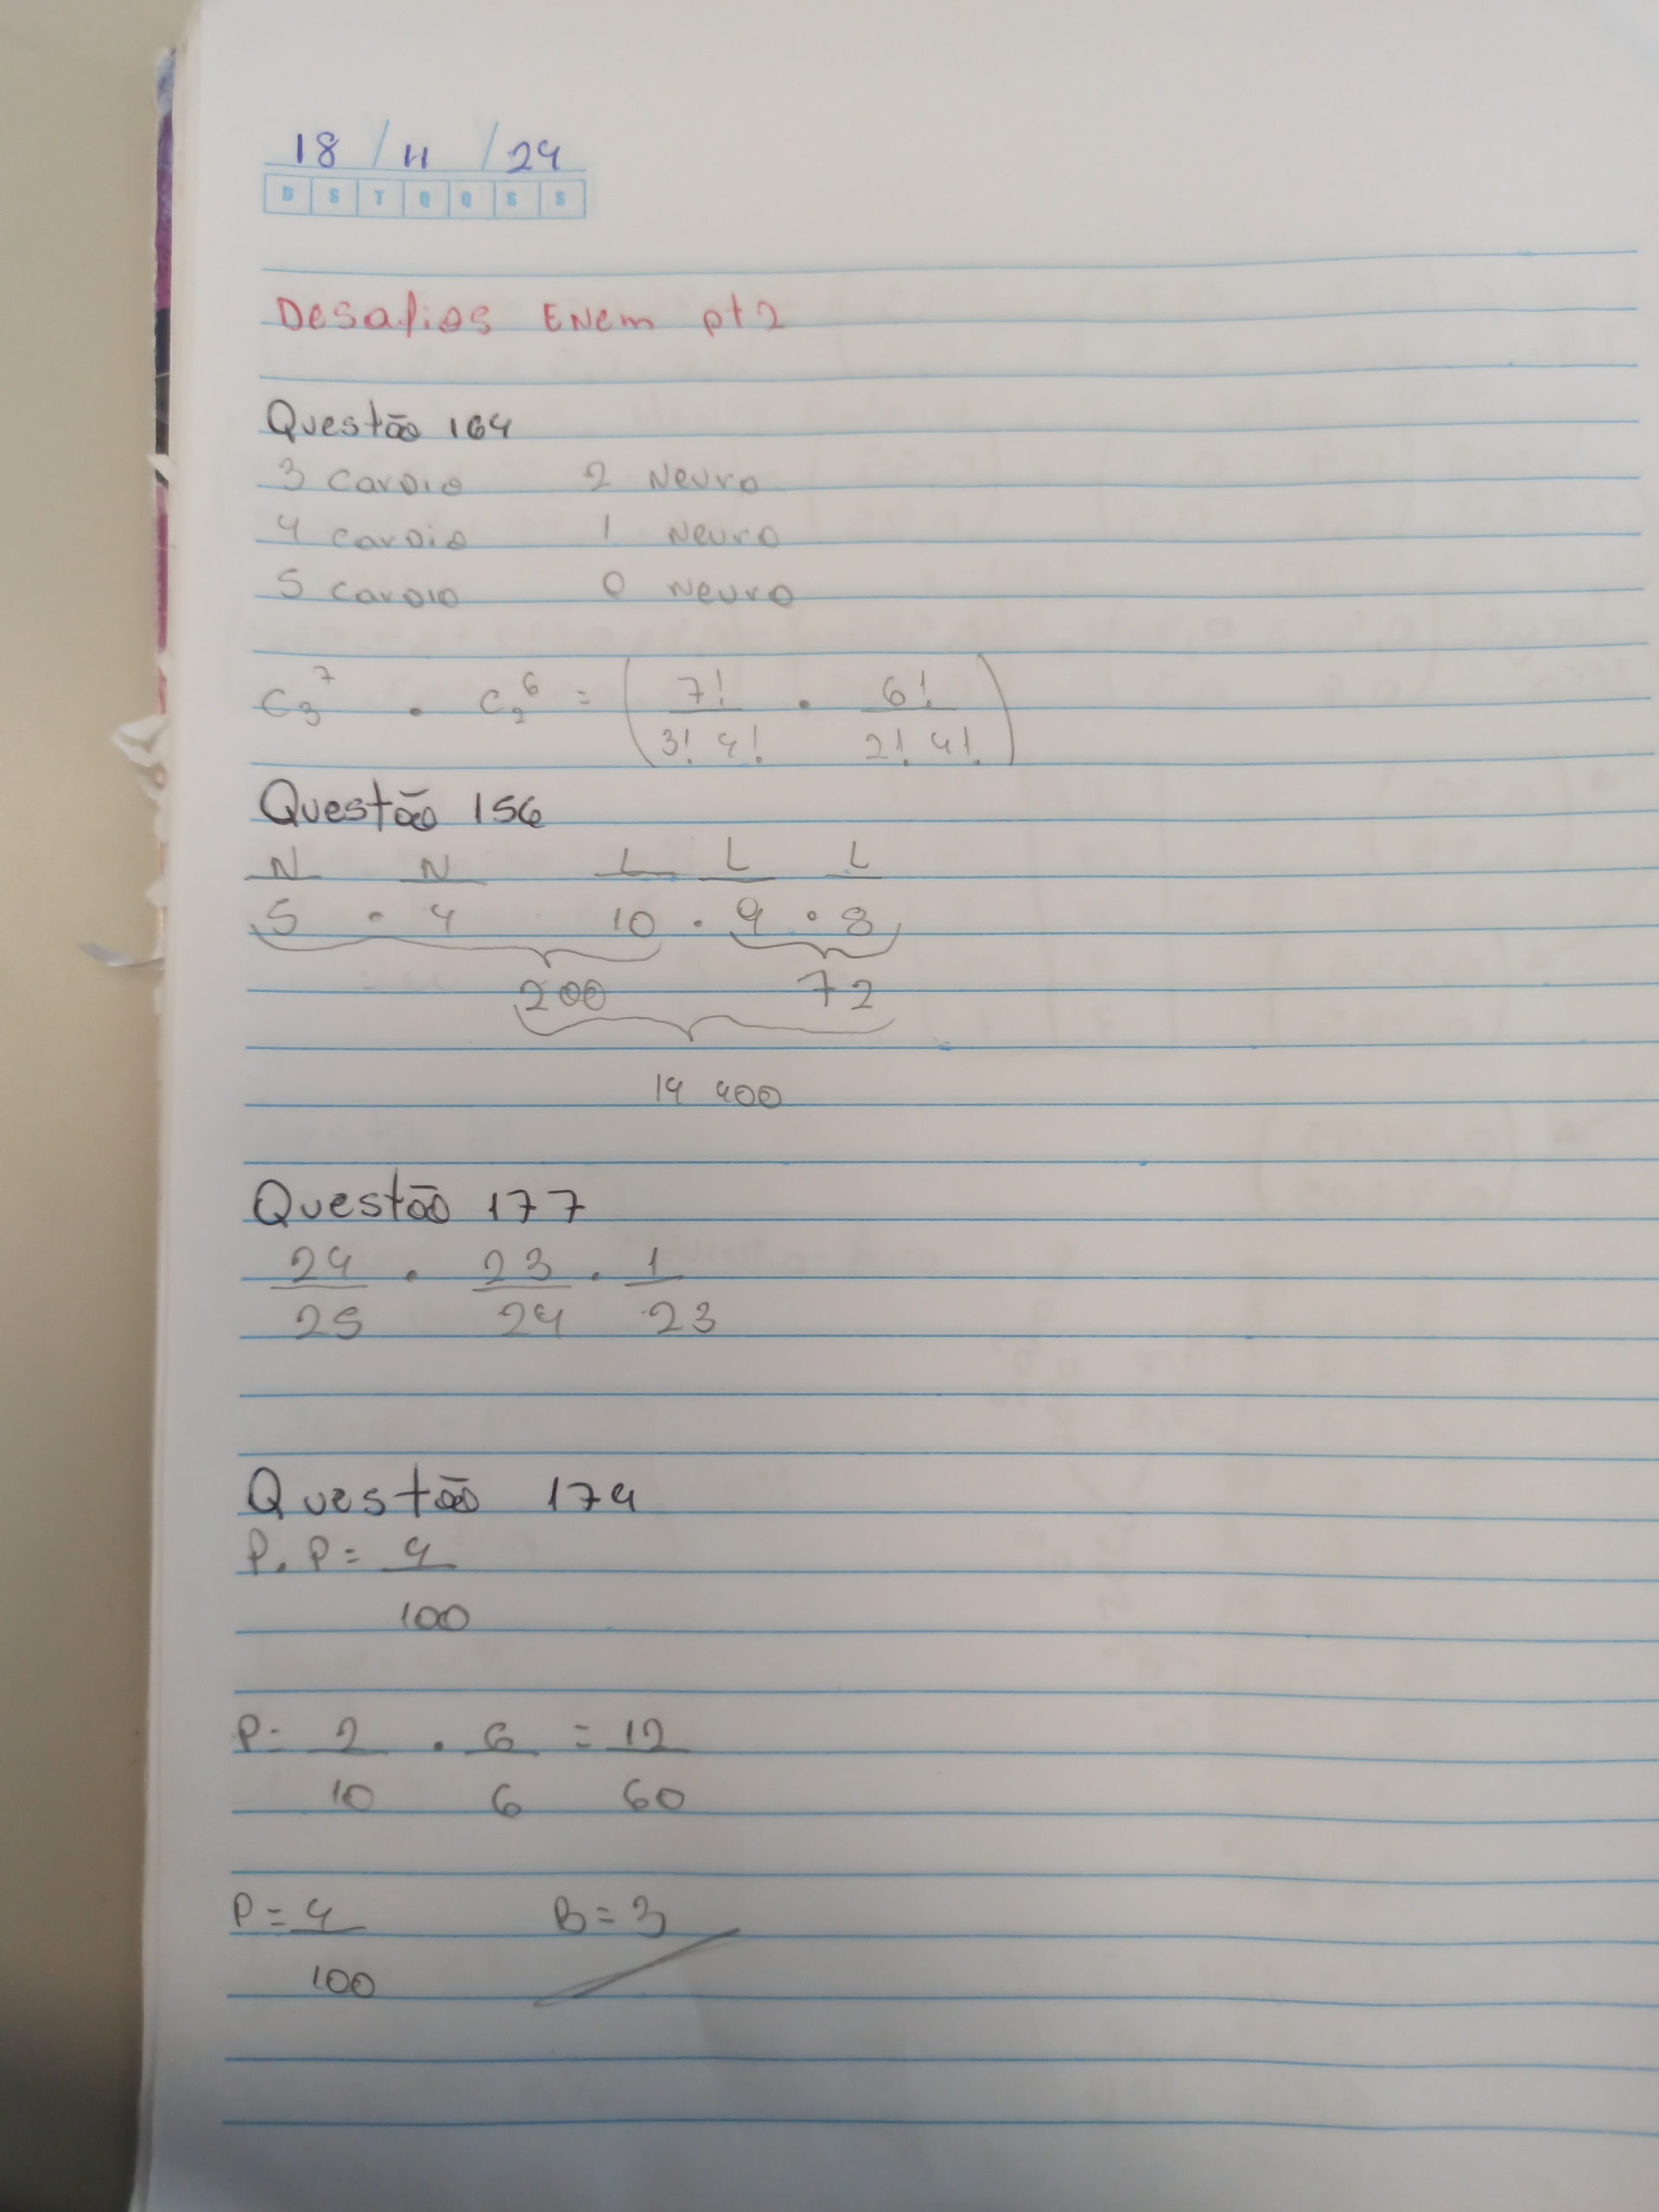 18 / 11 / 24
D S T Q Q S S
Desafios ENem pt2
Questão 164
3 cardio 2 Neuro
4 cardio 1 Neuro
5 cardio 0 Neuro
C₃⁷ . C₂⁶ = ( 7! / 3! 4! . 6! / 2! 4! )
Questão 156
N N L L L
5 . 4 10 . 9 . 8
200 72
14 400
Questão 177
24/25 . 23/24 . 1/23
Questão 174
P. P = 4/100
P = 2/10 . 6/6 = 12/60
P = 4/100 B = 3